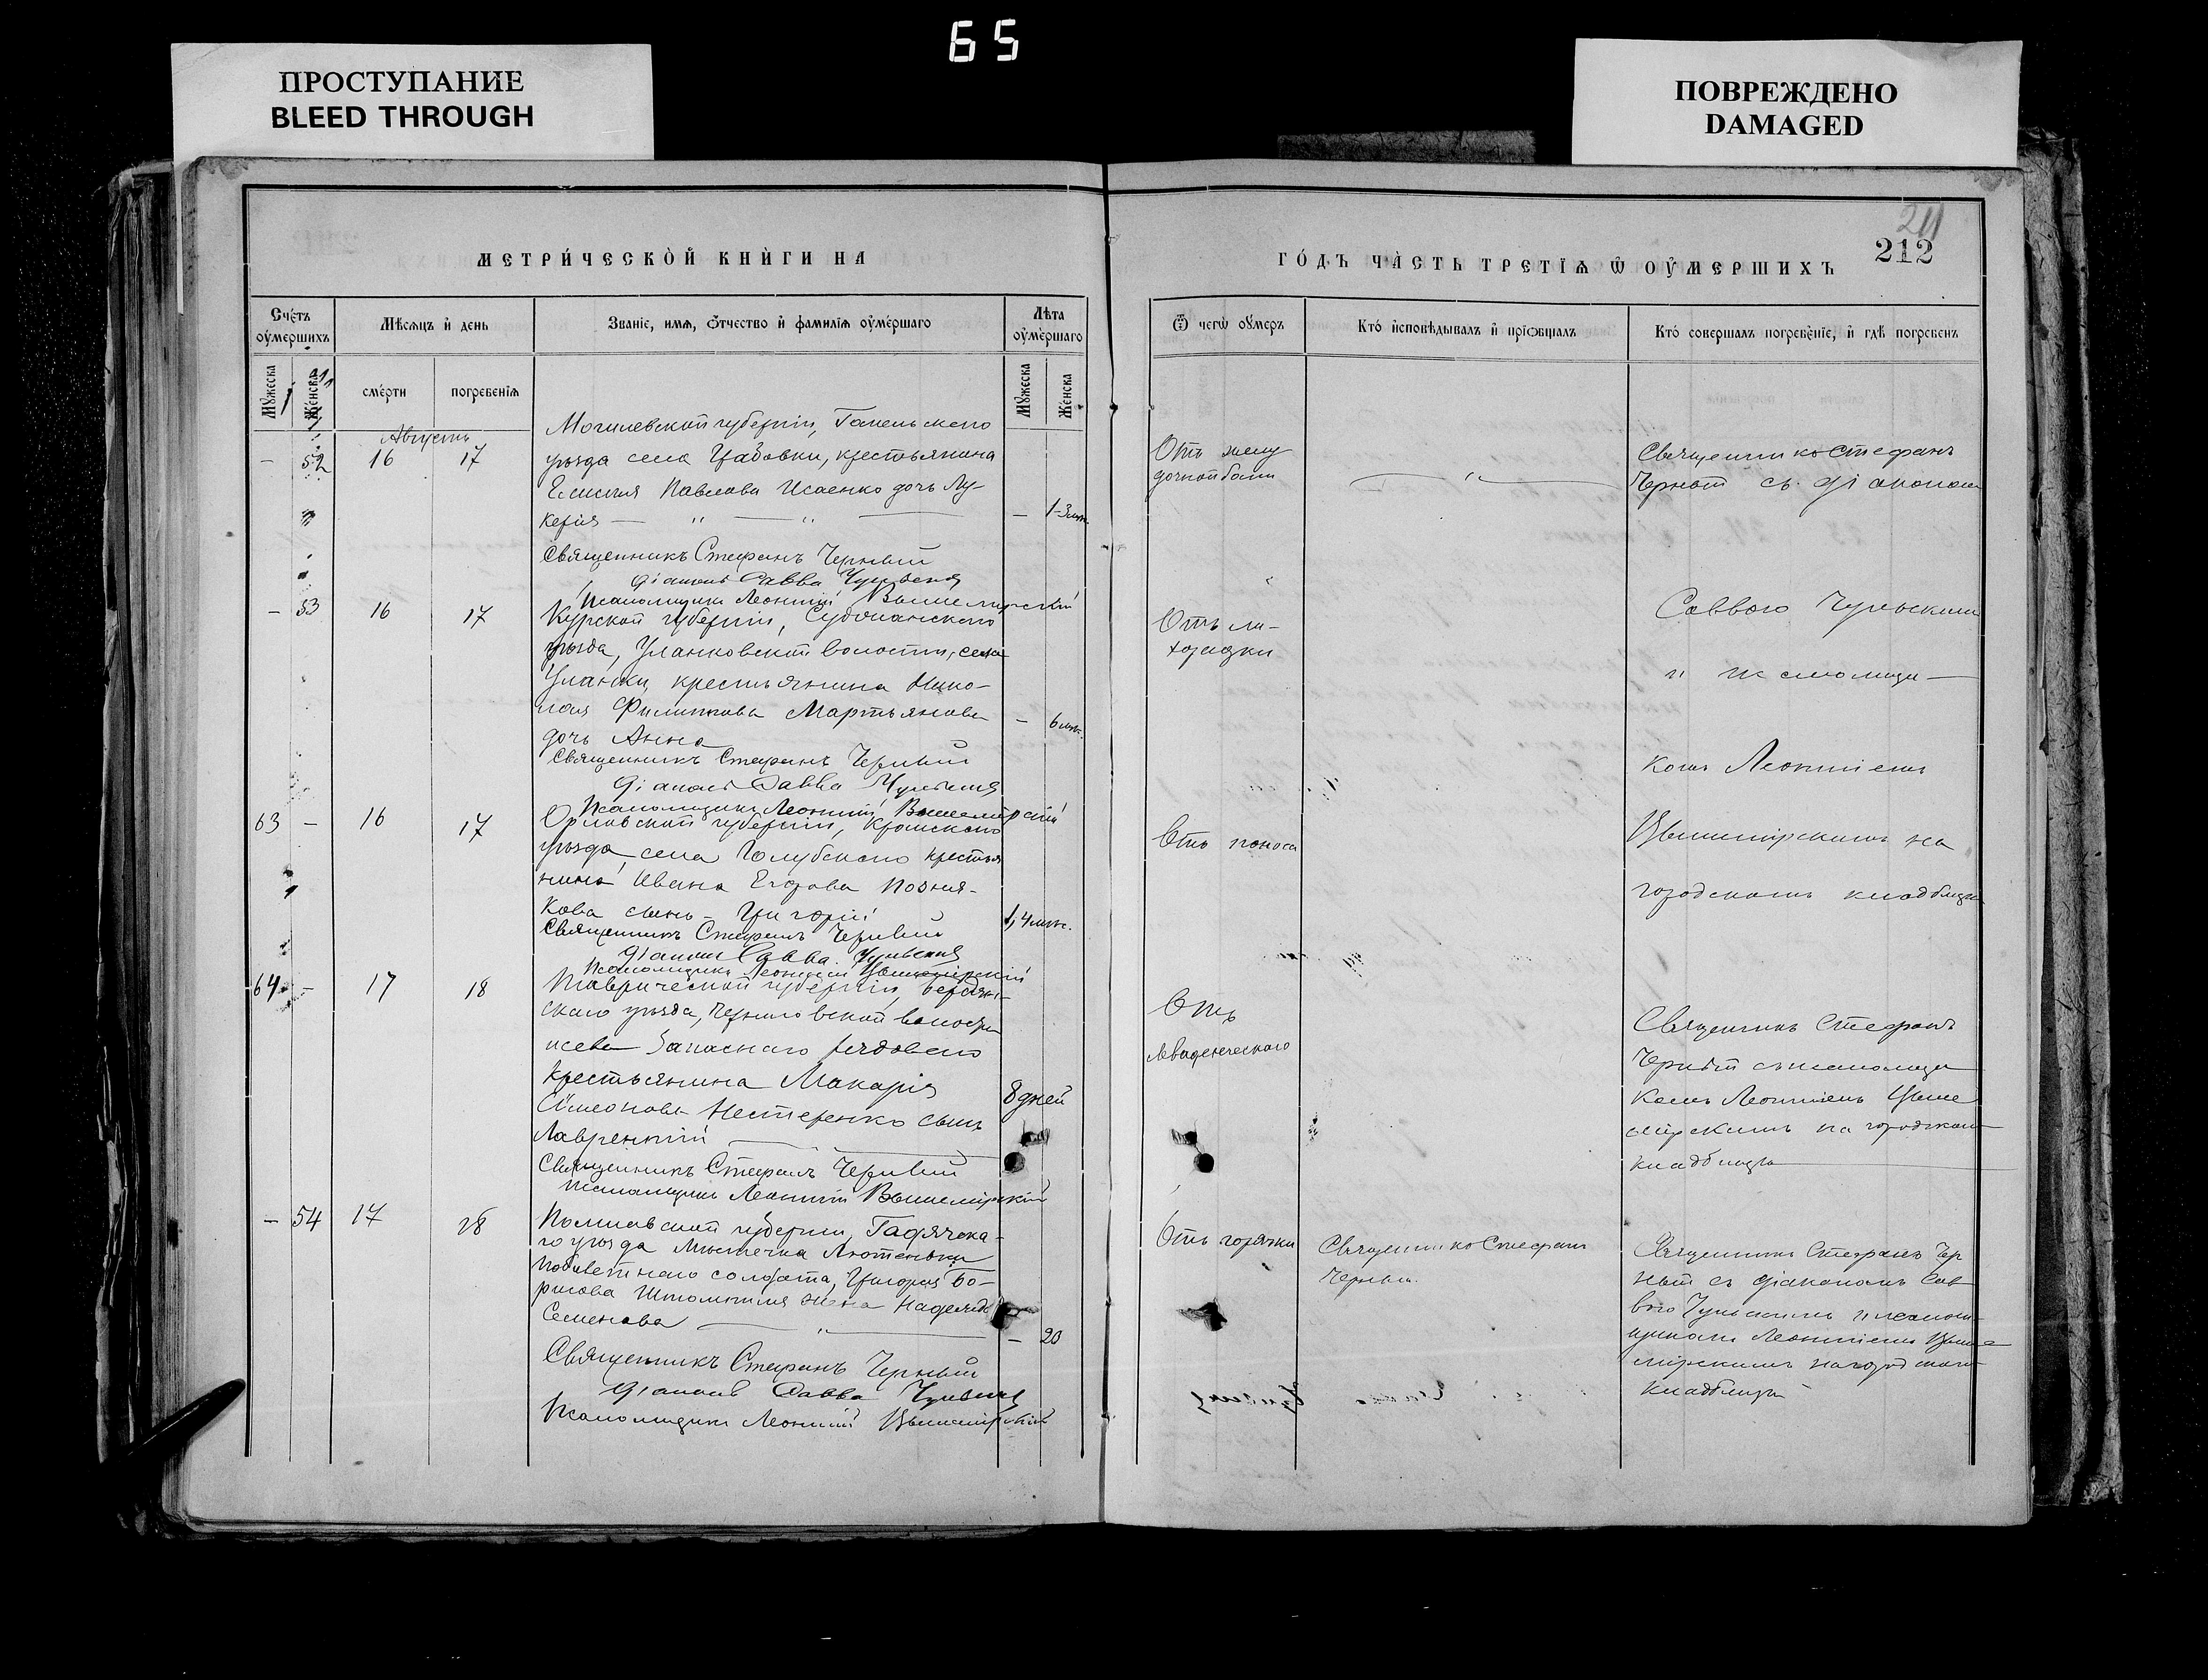 65
ПРОСТУПАНИЕ
BLEED THROUGH
ПОВРЕЖДЕНО
DAMAGED
МЕТРИ́ЧЕСКОЙ КНИ́ГИ НА
ГО́ДЪ ЧА́СТЬ ТРЕТІѦ Ѿ ОУ҆МЕРШИХЪ
211
212
Сче́тъ оу҆мершихъ
Мѣсѧцъ и҆ день
Званіе, имѧ, ѿчество и҆ фамилїѧ оу҆ме́ршаго
Лѣта оу҆ме́ршаго
Мꙋжеска
Женска
сме́рти
погребенїѧ
Мꙋжеска
Женска
Ѿ чегѡ̀ оу҆меръ
Кто́ и҆сповѣдывалъ и҆ прїѡбщалъ
Кто́ совершалъ погребе́нїе, и҆ гдѣ̀ погребенъ
Августъ
– 52 16 17
Могилевской губерніи, Гомельскаго
уѣзда села крестьянина
Павлова Исаенко дочь Лу-
керія — " — " —
– 1-3 мѣс.
Священникъ Стефанъ Черный
Діаконъ Савва
Псаломщикъ Леонтій Вышемірскій
Отъ желу
дочной боли
— " —
Священникъ Стефанъ
Черный съ діакономъ
– 53 16 17
Курской губерніи, Суджанскаго
уѣзда, Уланковской волости, села
Уланки, крестьянина Нико-
лая Филиппова Мартьянова
дочь Анна
– 6 мѣс.
Священникъ Стефанъ Черный
Діаконъ Савва
Псаломщикъ Леонтій Вышемірскій
Отъ ли-
хорадки
Саввою
и псаломщи—
комъ Леонтіемъ
63 – 16 17
Орловской губерніи, Кромскаго
уѣзда, села крестья
нина Ивана Позня-
кова сынъ – Григорій
1, 4 мѣс.
Священникъ Стефанъ Черный
Діаконъ Савва
Псаломщикъ Леонтій Вышемірскій
Отъ поноса
Вышемірскимъ на
городскомъ кладбищѣ
64 – 17 18
Таврической губерніи, Бердян-
скаго уѣзда, Черниговской волости
запаснаго рядоваго
крестьянина Макарія
Симеонова Нестеренко сынъ
Лаврентій —
8 дней
Священникъ Стефанъ Черный
Псаломщикъ Леонтій Вышемірскій
Отъ
младенческаго
Священникъ Стефанъ
Черный съ псаломщи
комъ Леонтіемъ Выше
мірскимъ на городскомъ
кладбищѣ —
– 54 17 18
Полтавской губерніи, Гадячска-
го уѣзда мѣстечка Лютеньки
солдата, Григорія Бо-
рисова жена Надежда
Семенова — " —
– 20
Священникъ Стефанъ Черный
Діаконъ Савва
Псаломщикъ Леонтій Вышемірскій
Отъ горячки
Священникъ Стефанъ
Черный.
Священникъ Стефанъ Чер
ный съ діакономъ Сав
вою и псалом
щикомъ Леонтіемъ Выше
мірскимъ на городскомъ
кладбищѣ